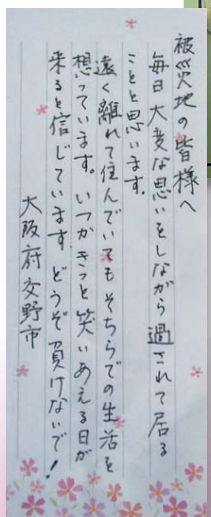 被災地の皆様へ
毎日大変な思いをしながら過されて居る
ことと思います。
遠く離れて住んでいてもそちらでの生活を
想っています。いつかきっと笑いあえる日が
来ると信じています どうぞ負けないで!
大阪府交野市